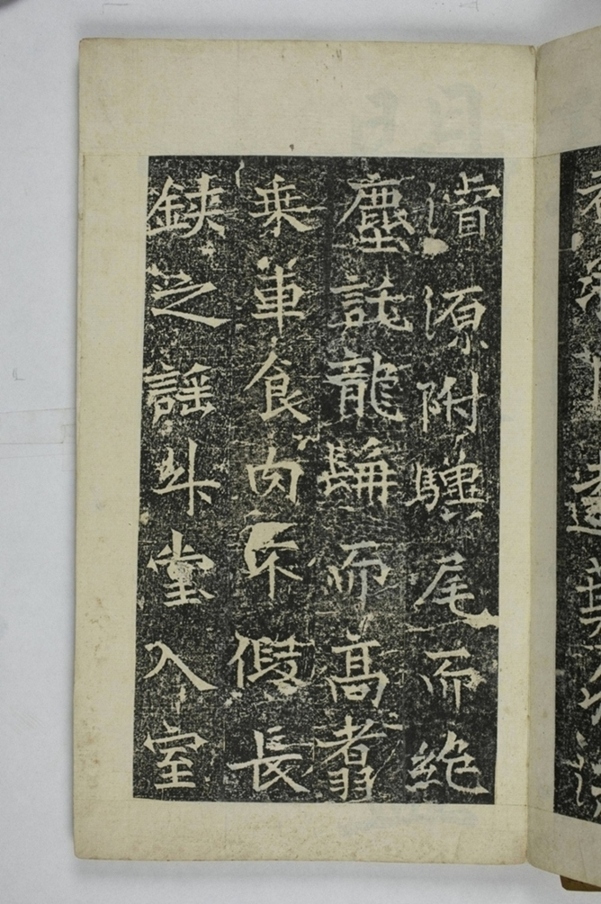 源附驥尾而絶
塵託龍髯而高翥
乗車食肉不假長
鋏之謡升堂入室